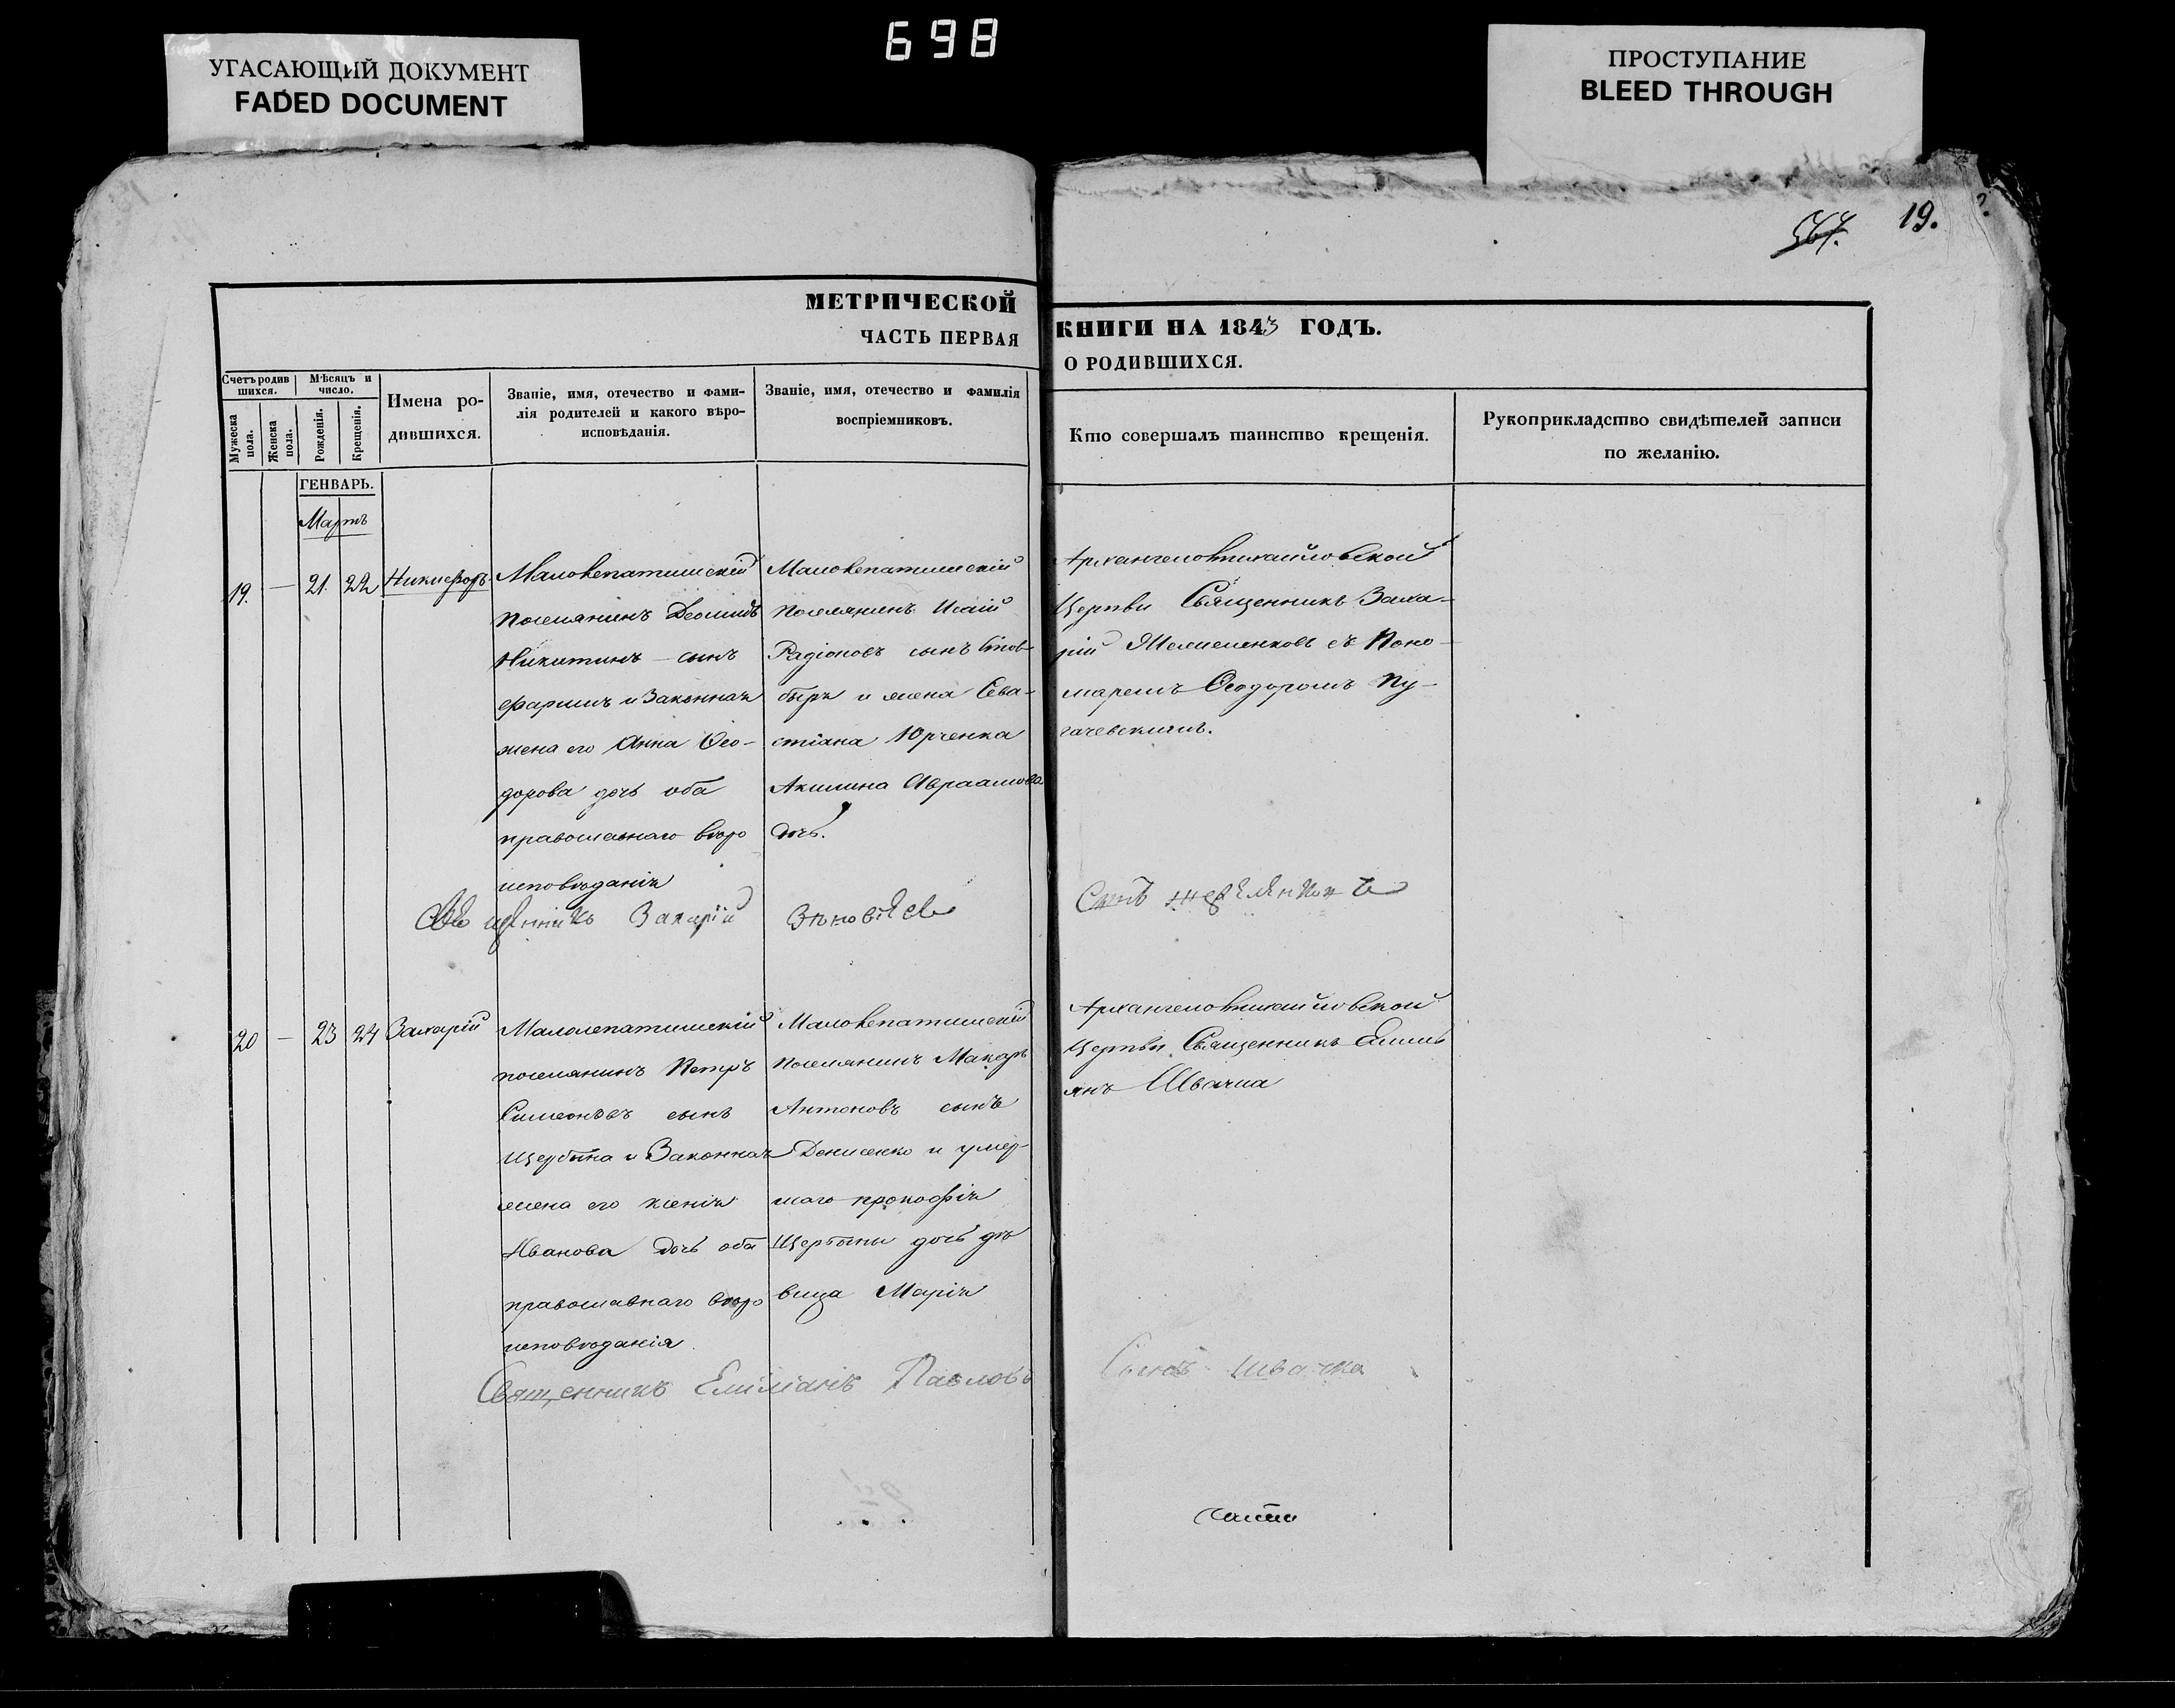 698
УГАСАЮЩИЙ ДОКУМЕНТ
FADED DOCUMENT
ПРОСТУПАНИЕ
BLEED THROUGH
567.
19.
МЕТРИЧЕСКОЙ
ЧАСТЬ ПЕРВАЯ
КНИГИ НА 1843 ГОДЪ.
О РОДИВШИХСЯ.
Счетъ родив
шихся.
Мужеска
пола.
Женска
пола.
Мѣсяцъ и
число.
Рожденія.
Крещенія.
Имена ро-
дившихся.
Званіе, имя, отечество и фами-
лія родителей и какого вѣро-
исповѣданія.
Званіе, имя, отечество и фамилія
воспріемниковъ.
Кто совершалъ таинство крещенія.
Рукоприкладство свидѣтелей записи
по желанію.
ГЕНВАРЬ.
Мартъ
19. — 21. 22 Никифоръ
Поселянинъ
Никитинъ сынъ
и Законная
жена его Анна Ѳео-
дорова дочь оба
православнаго вѣро
исповѣданія
Поселянинъ Исаій
Радіоновъ сынъ
и жена Сева-
стіана Юрченка
Акилина Авраамова
дочь.
Архангеломихайловской
Церкви Священникъ Заха-
рій съ Поно-
маремъ Ѳеодоромъ Пу-
гачевскимъ.
Священникъ Захарій Зѣновіев
20 — 23 24 Захарій
поселянинъ Петръ
Симеоновъ сынъ
Щербина и Законная
жена его Ксенія
Иванова дочь оба
православнаго вѣро
исповѣданія
Поселянинъ Макаръ
Антоновъ сынъ
Денисенко и умер-
шаго прокофія
Щербины дочь дѣ
вица Марія
Архангеломихайловской
Церкви Священникъ Емили
янъ Швачка
Священникъ Емиліанъ Павловъ
Сынъ Швачка